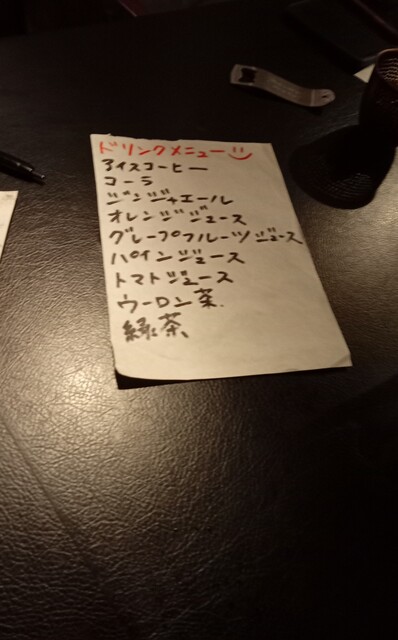 ドリンクメニュー
アイスコーヒー
コーラ
ジンジャエール
オレンジジュース
グレープフルーツジュース
パインジュース
トマトジュース
ウーロン茶.
緑茶、